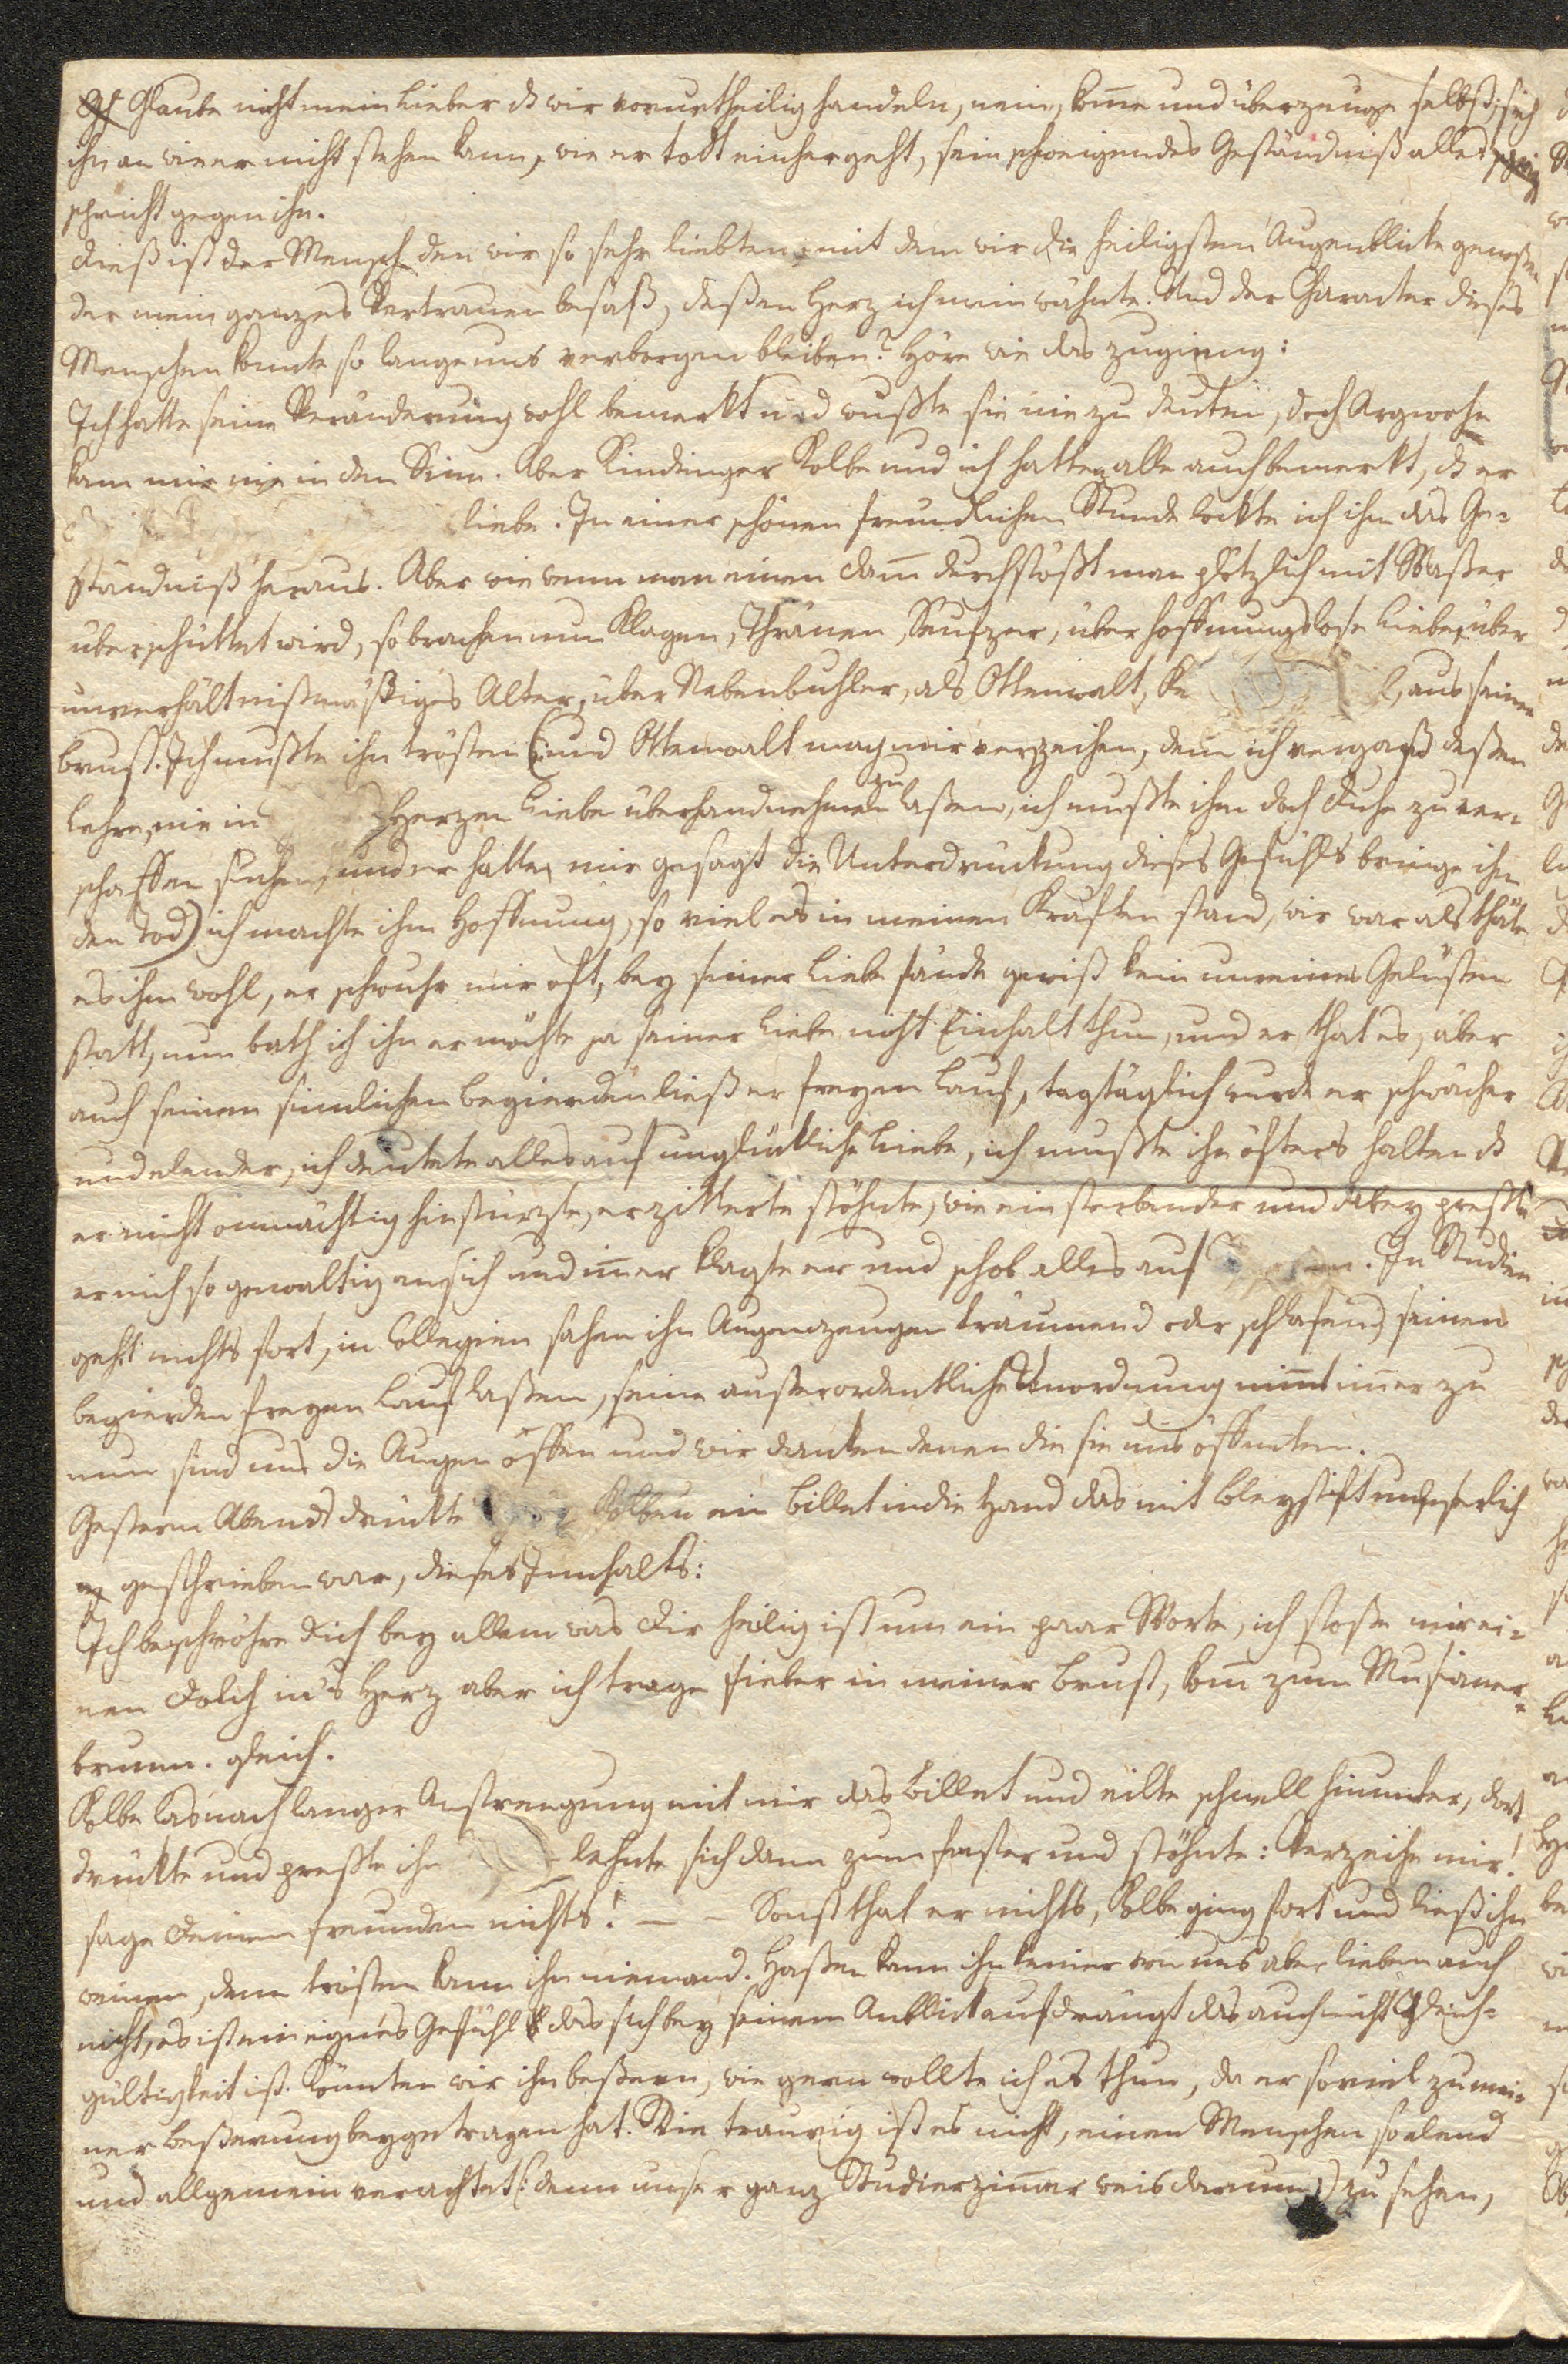 Glaube nicht mein Lieber dß wir vorurtheilig handeln, nein, kom̄e und überzeuge selbst, sieh
ihn an wie er nicht stehen kann, wie er todt einhergeht, sein schweigendes Geständniß alles
spricht gegen ihn.
Dieß ist der Mensch den wir so sehr liebten, mit dem wir die heiligsten Augenblicke genoßen
der mein ganzes Vertrauen besaß, deßen Herz ich mein wähnte. Und der Character dieses
Menschen konnte so lange uns verborgen bleiben? Höre wie das zuging:
Ich hatte seine Veränderung wohl bemerkt und wußte sie nie zu deuten, doch Argwohn
kam mir nie in den Sinn. Aber Kindinger Kolbe und ich hatten alle auch bemerkt, dß er
liebe. In einer schönen freundlichen Stunde lockte ich ihm das Ge-
ständniß heraus. Aber wie wenn man einen Dam̄ durchstößt man plötzlich mit Waßer
überschüttet wird, so brachen nun Klagen, Thränen, Seufzer, über hoffnungslose Liebe, über
unverhältnißmäßiges Alter, über Nebenbuhler, als Ottenwalt, Ke l, aus seiner
Brust. Ich mußte ihn trösten (: und Ottenwalt mag mir verzeihen, denn ich vergaß deßen
Lehre, nie in Herzen Liebe überhandnehmen zu laßen, ich mußte ihm doch Ruhe zu ver-
schaffen suchen, und er hatte mir gesagt die Unterdrückung dieses Gefühls bringe ihm
den Tod) ich machte ihm Hoffnung, so viel es in meinen Kräften stand, mir war als thäte
es ihm wohl, er schwuhr mir oft, bey seiner Liebe fände gewiß kein unreines Gelüsten
statt, nun bath ich ihn er möchte ja seiner Liebe nicht Einhalt thun, und er that es, aber
auch seinen sinnlichen Begierden ließ er freyen Lauf, tagtäglich wurde er schwächer
und elender, ich deutete alles auf unglückliche Liebe, ich mußte ihn öfters halten dß
er nicht onmächtig hinstürzte, er zitterte stöhnte, wie ein sterbender und dabey preßte
er mich so gewaltig an sich und im̄er klagte er und schob alles auf . In Studien
geht nichts fort, in Collegien sahen ihn Augenzeugen träumend oder schlafend, seinen
Begierden freyen Lauf laßen, seine außerordentliche Unordnung nim̄t im̄er zu
nun sind uns die Augen offen und wir danken denen die sie uns öffneten.
Gestern Abends drückte Kolben ein Billet in die Hand das mit Bleystift unleserlich
geschrieben war, dieses Innhalts:
Ich beschwöhre Dich bey allem was Dir heilig ist um ein paar Worte, ich stoße mir ei-
nen Dolch in's Herz aber ich trage Fieber in meiner Brust, kom̄ zum
brunn. gleich.
Kolbe las nach langer Anstrengung mit mir das Billet und eilte schnell hinunter, dort
drückte und preßte ihn lehnte sich dann zum Fenster und stöhnte: Verzeihe mir!
sage Deinen Freunden nichts! – – Sonst that er nichts, Kolbe ging fort und ließ ihn
weinen, denn trösten kann ihn niemand. Haßen kann ihn keiner von uns aber lieben auch
nicht, es ist ein eignes Gefühl das sich bey seinem Anblick aufdrängt das auch nicht Gleich-
gültigkeit ist. Könnten wir ihn beßern, wie gern wollte ich es thun, da er soviel zu mei-
ner Beßerung beygetragen hat. Wie traurig ist es nicht, einen Menschen so elend
und allgemein verachtet (: denn unser ganz Studierzim̄er weis darum :) zu sehen,